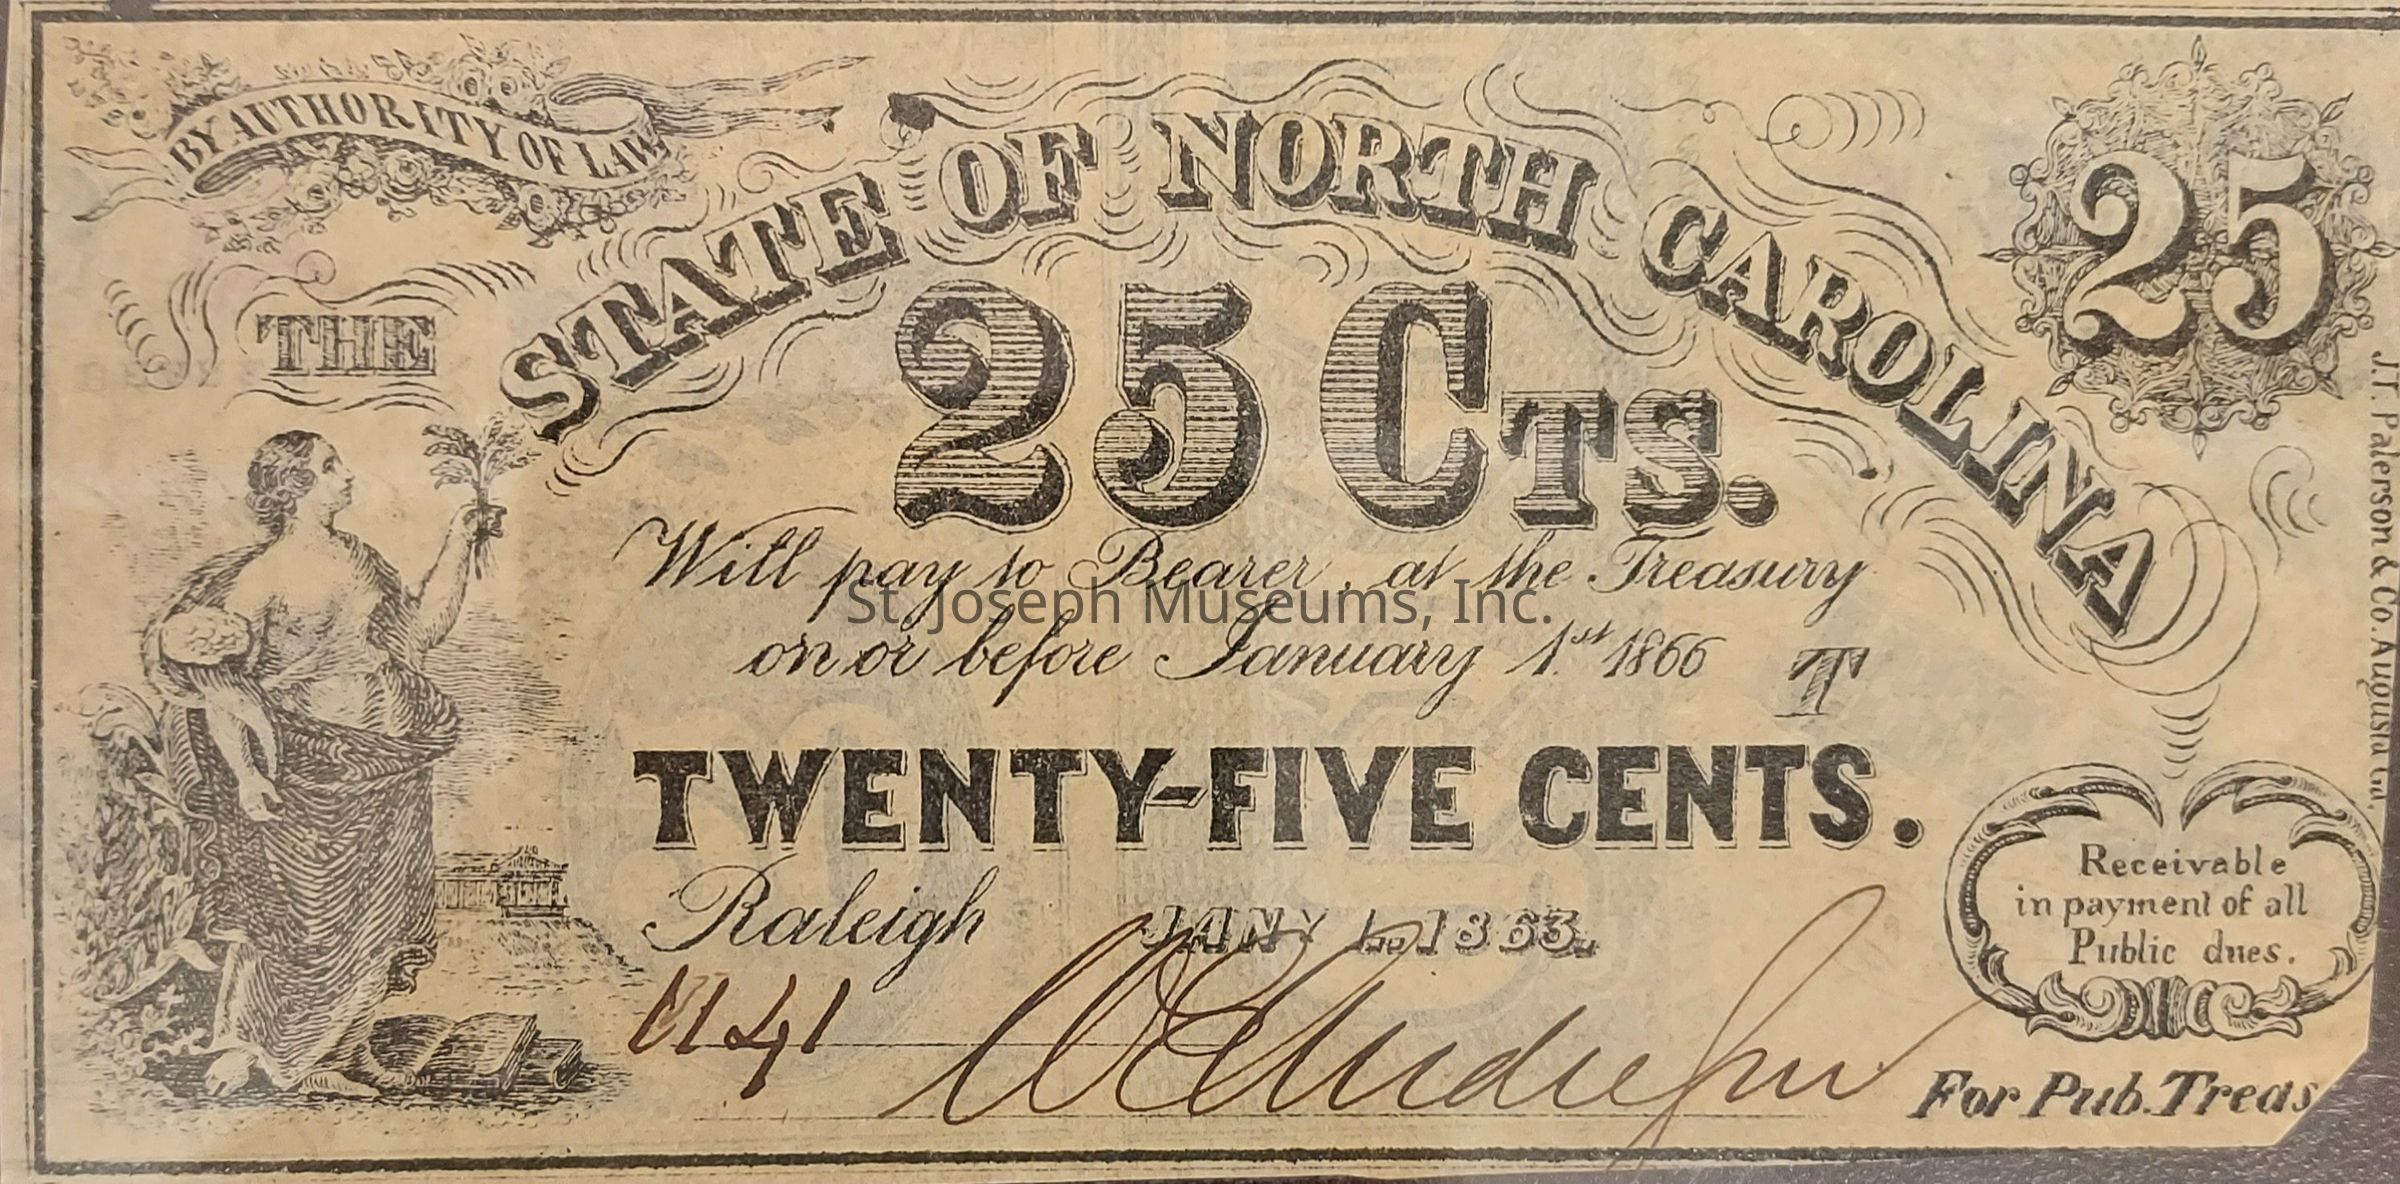 BY AUTHORITY OF LAW
THE STATE OF NORTH CAROLINA
25
25 CTS.
Will pay to Bearer, at the Treasury
St Joseph Museums, Inc.
on or before January 1st 1866
T
TWENTY-FIVE CENTS.
Raleigh JANY 1. 1863.
1141
Receivable
in payment of all
Public dues.
For Pub. Treas
J.T. Paterson & Co. Augusta Ga.